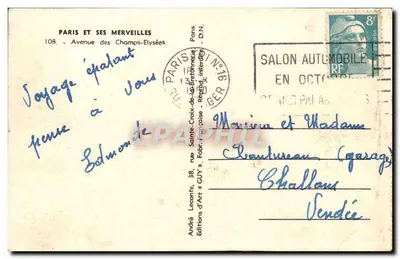 PARIS ET SES MERVEILLES
108. - Avenue des Champs-Elysées
Voyage épatant
pense à vous
Edmonde
André Leconte, 38, rue Sainte-Croix-de-la-Bretonnerie, Paris.
Editions d'Art "GUY", Fabr. Française - Reprod. interdite - D.N.
PARIS N°16
8F
RF
SALON AUTOMOBILE
EN OCTOBRE
GRAND PALAIS
CPAPHIL
Monsieur et Madame
(garage)
Challans
Vendée